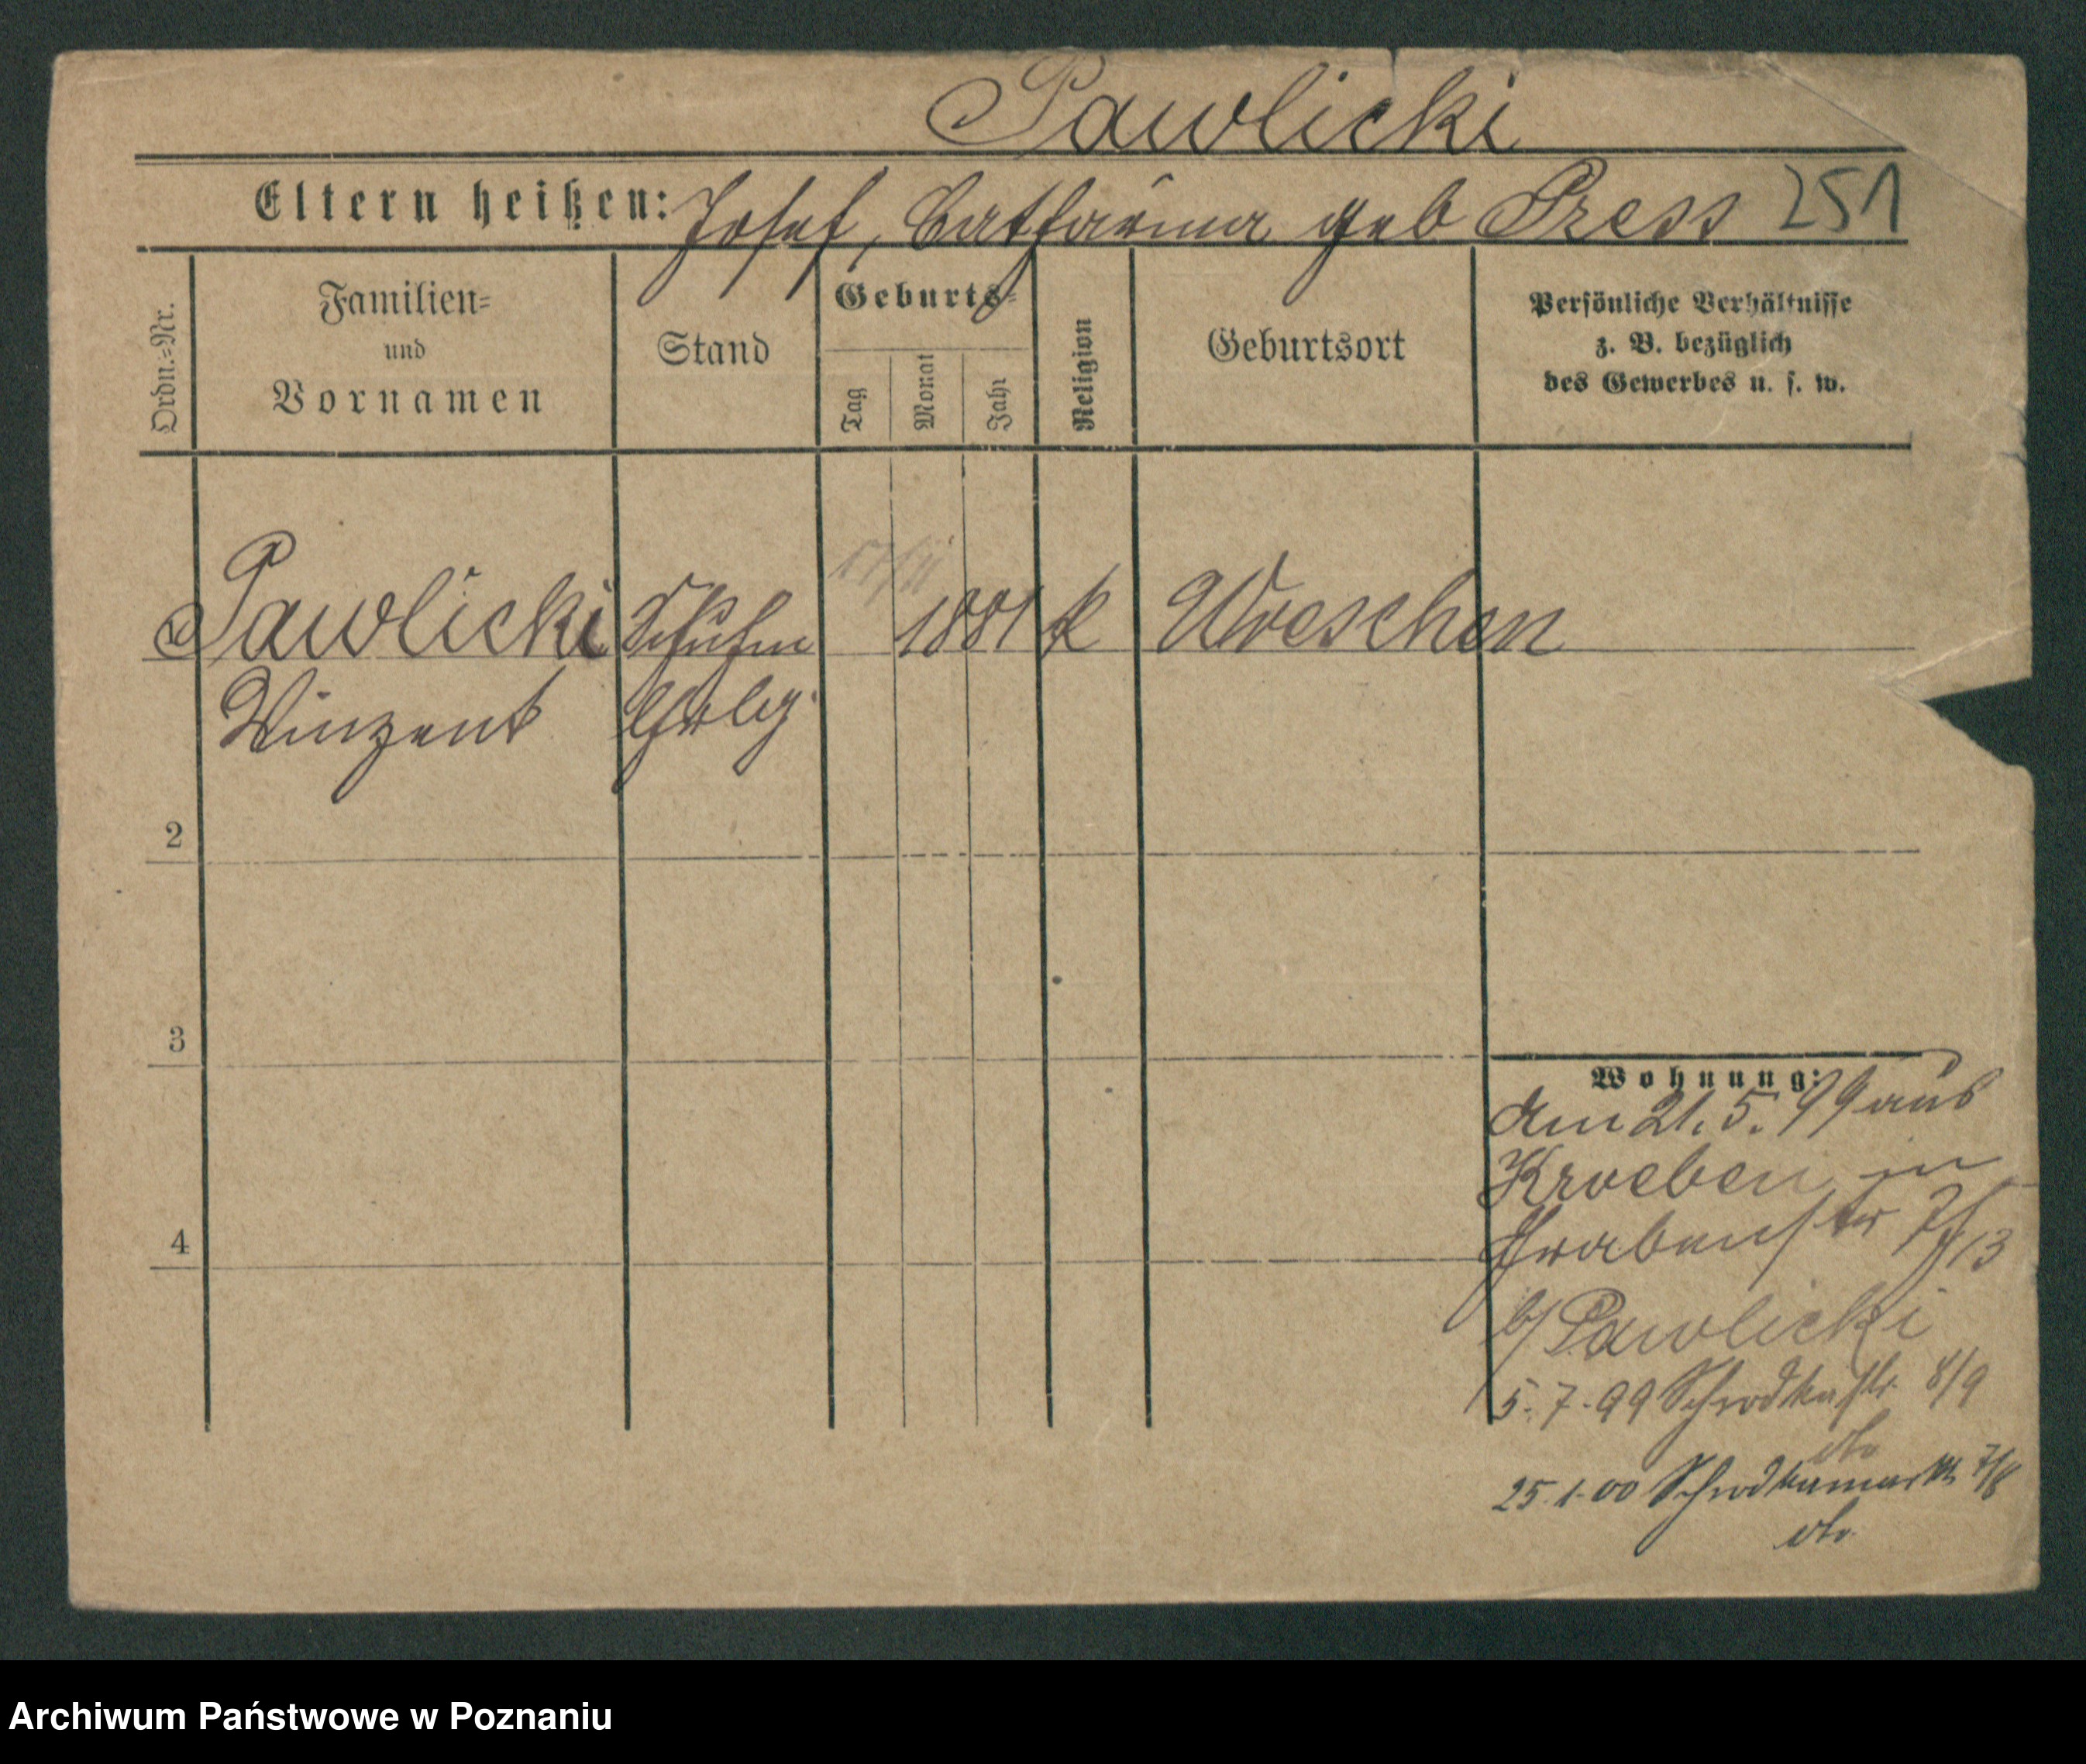 Pawlicki
Eltern heißen: Josef, Catharina geb Press 251
Ordn.=Nr.
Familien=
und
Vornamen
Stand
Geburts=
Tag
Monat
Jahr
Religion
Geburtsort
Persönliche Verhältnisse
z. B. bezüglich
des Gewerbes u. s. w.
1 Pawlicki Schuhm 1881 k Wreschen
Winzent Lehrlg.
2
3
4
Wohnung:
Am 21.5.99 aus
Kroeben in
Grabenstr 13
b/ Pawlicki
5.7.99 Schrodkastr. 8/9
25.1.00 Schrodkamarkt 7/8